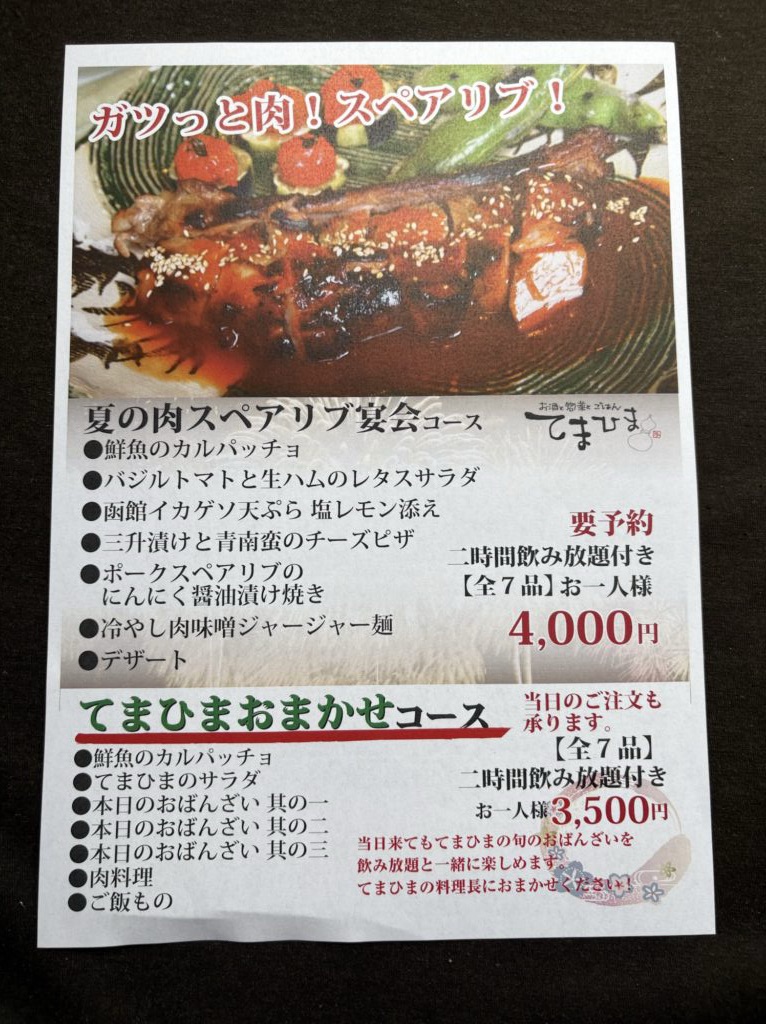 ガツっと肉！スペアリブ！
夏の肉スペアリブ宴会コース
お酒と惣菜とごはん
てまひま
●鮮魚のカルパッチョ
●バジルトマトと生ハムのレタスサラダ
●函館イカゲソ天ぷら 塩レモン添え
●三升漬けと青南蛮のチーズピザ
●ポークスペアリブの
にんにく醤油漬け焼き
●冷やし肉味噌ジャージャー麺
●デザート
要予約
二時間飲み放題付き
【全７品】お一人様
4,000円
てまひまおまかせコース
当日のご注文も
承ります。
●鮮魚のカルパッチョ
●てまひまのサラダ
●本日のおばんざい 其の一
●本日のおばんざい 其の二
●本日のおばんざい 其の三
●肉料理
●ご飯もの
【全７品】
二時間飲み放題付き
お一人様3,500円
当日来てもてまひまの旬のおばんざいを
飲み放題と一緒に楽しめます。
てまひまの料理長におまかせください！